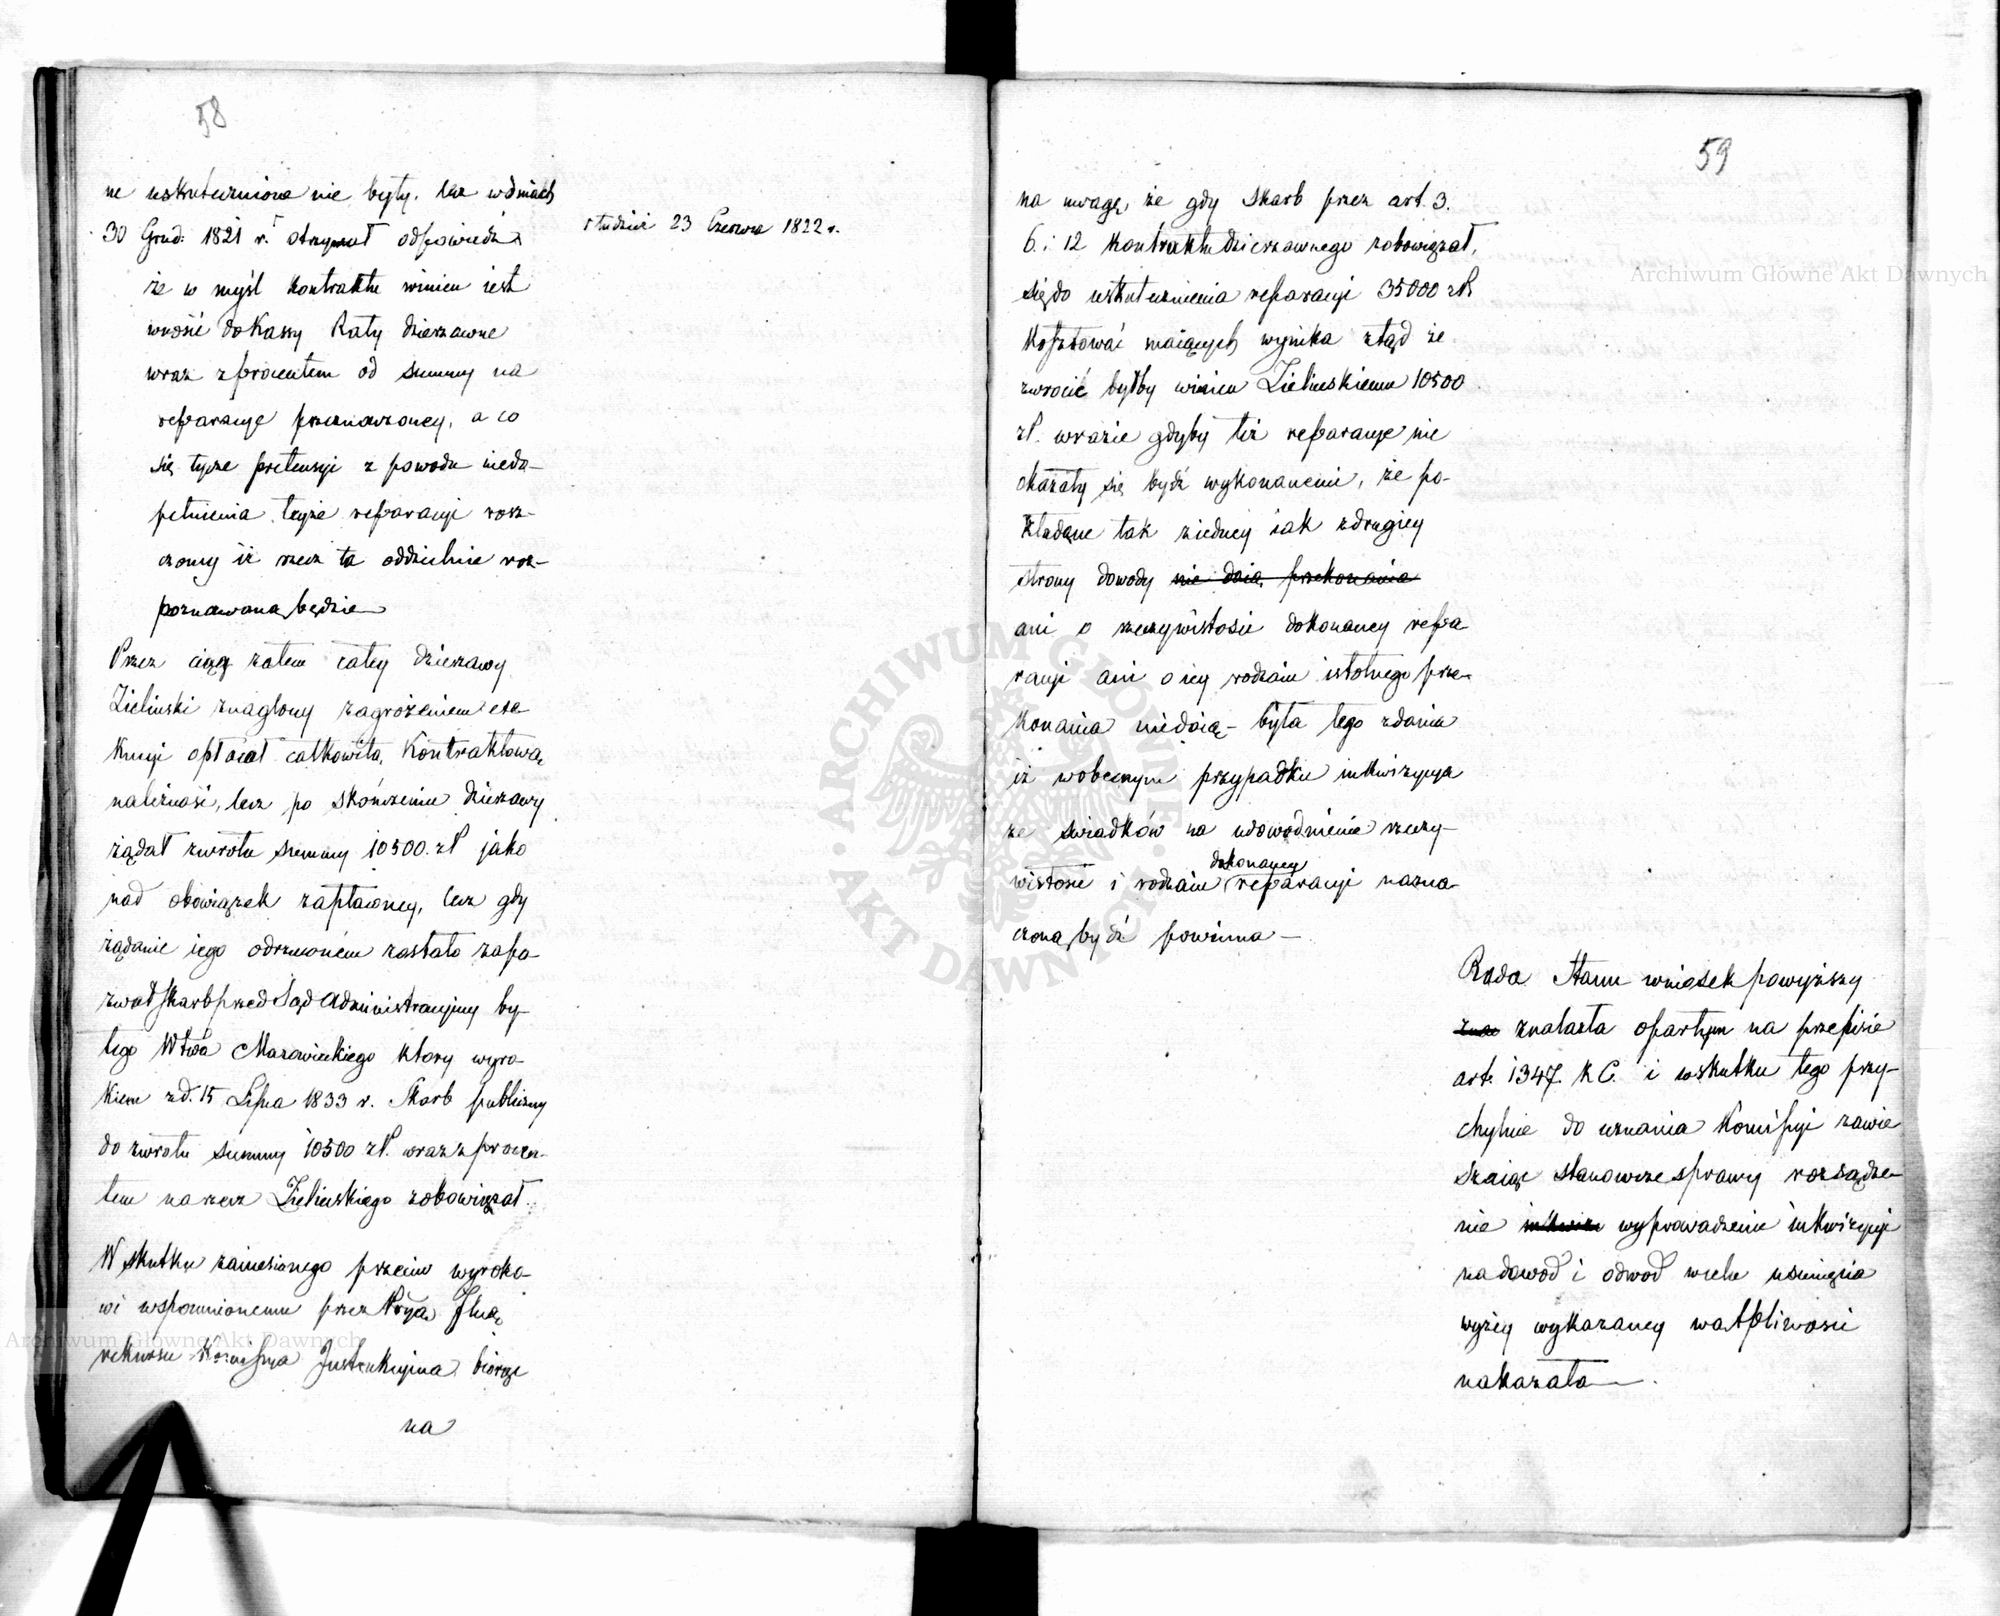 58
ne uskutecznione nie były. lecz w dniach
30 Grud: 1821 r. otrzymał odpowiedź
studzież 23 Czerwca 1822 r.
że w myśl kontraktu winien iest
wnosić do Kassy Raty dzierzawne
wraz z procentem od summy na
reparacyę przeznaczoney, a co
się tycze pretensyi z powodu niedo-
pełnienia teyże reparacyi rosz-
czoney iż rzecz ta oddzielnie roz-
poznawaną będzie
Przez ciąg zatem całey dzierzawy
Zieliński znaglony zagrożeniem exe-
kucyi opłacał całkowitą Kontraktową
należność, lecz po skończeniu dzierzawy
żądał zwrotu summy 10500. zł jako
nad obowiązek zapłaconey, lecz gdy
żądanie iego odrzuconém zostało zapo
zwał Skarb przed Sąd Administracyjny by-
łego Wtwa Mazowieckiego ktory wyro-
kiem z d. 15 Lipca 1833 r. Skarb publiczny
do zwrotu summy 10500 zł. wraz z procen-
tem na rzecz Zielińskiego zobowiązał.
W skutku zaniesionego przeciw wyroko-
wi wspomnionemu przez Prryą Jlną
rekursu Kommissya Instrukcyjna biorąc
na
59
na uwagę, że gdy Skarb przez art. 3.
6. i 12 Kontraktu dzierzawnego zobowiązał,
się do uskutecznienia reparacyi 35000 zł
kosztować maiących wynika ztąd że
zwrócić byłby winien Zielinskiemu 10500
zł. wrazie gdyby też reparacye nie
okazały się bydź wykonanemi, że po-
kładane tak z iedney iak z drugiey
strony dowody nie daią przekonania
ani o rzeczywistości dokonaney repa
racyi ani o iey rodzaiu istotnego prze-
konania niedaią – była tego zdania
iż w obecnym przypadku inkwizycya
ze swiadków na udowodnienie rzeczy-
dokonaney
wistości i rodzaiu reparacyi nazna-
czoną bydź powinna –
Rada Stanu wniosek powyższy
zna znalazła opartym na przepisie
art. 1347. K C. i w skutku tego przy-
chylnie do uznania Kommissyi zawie
szaiąc stanowcze sprawy rozsądze-
nie inkwiz wyprowadzenie inkwizycyi
na dowód i odwód w celu usunięcia
wyżey wykazaney wątpliwości
nakazała.
Archiwum Główne Akt Dawnych
Archiwum Główne Akt Dawnych
ARCHIWUM GŁÓWNE AKT DAWNYCH